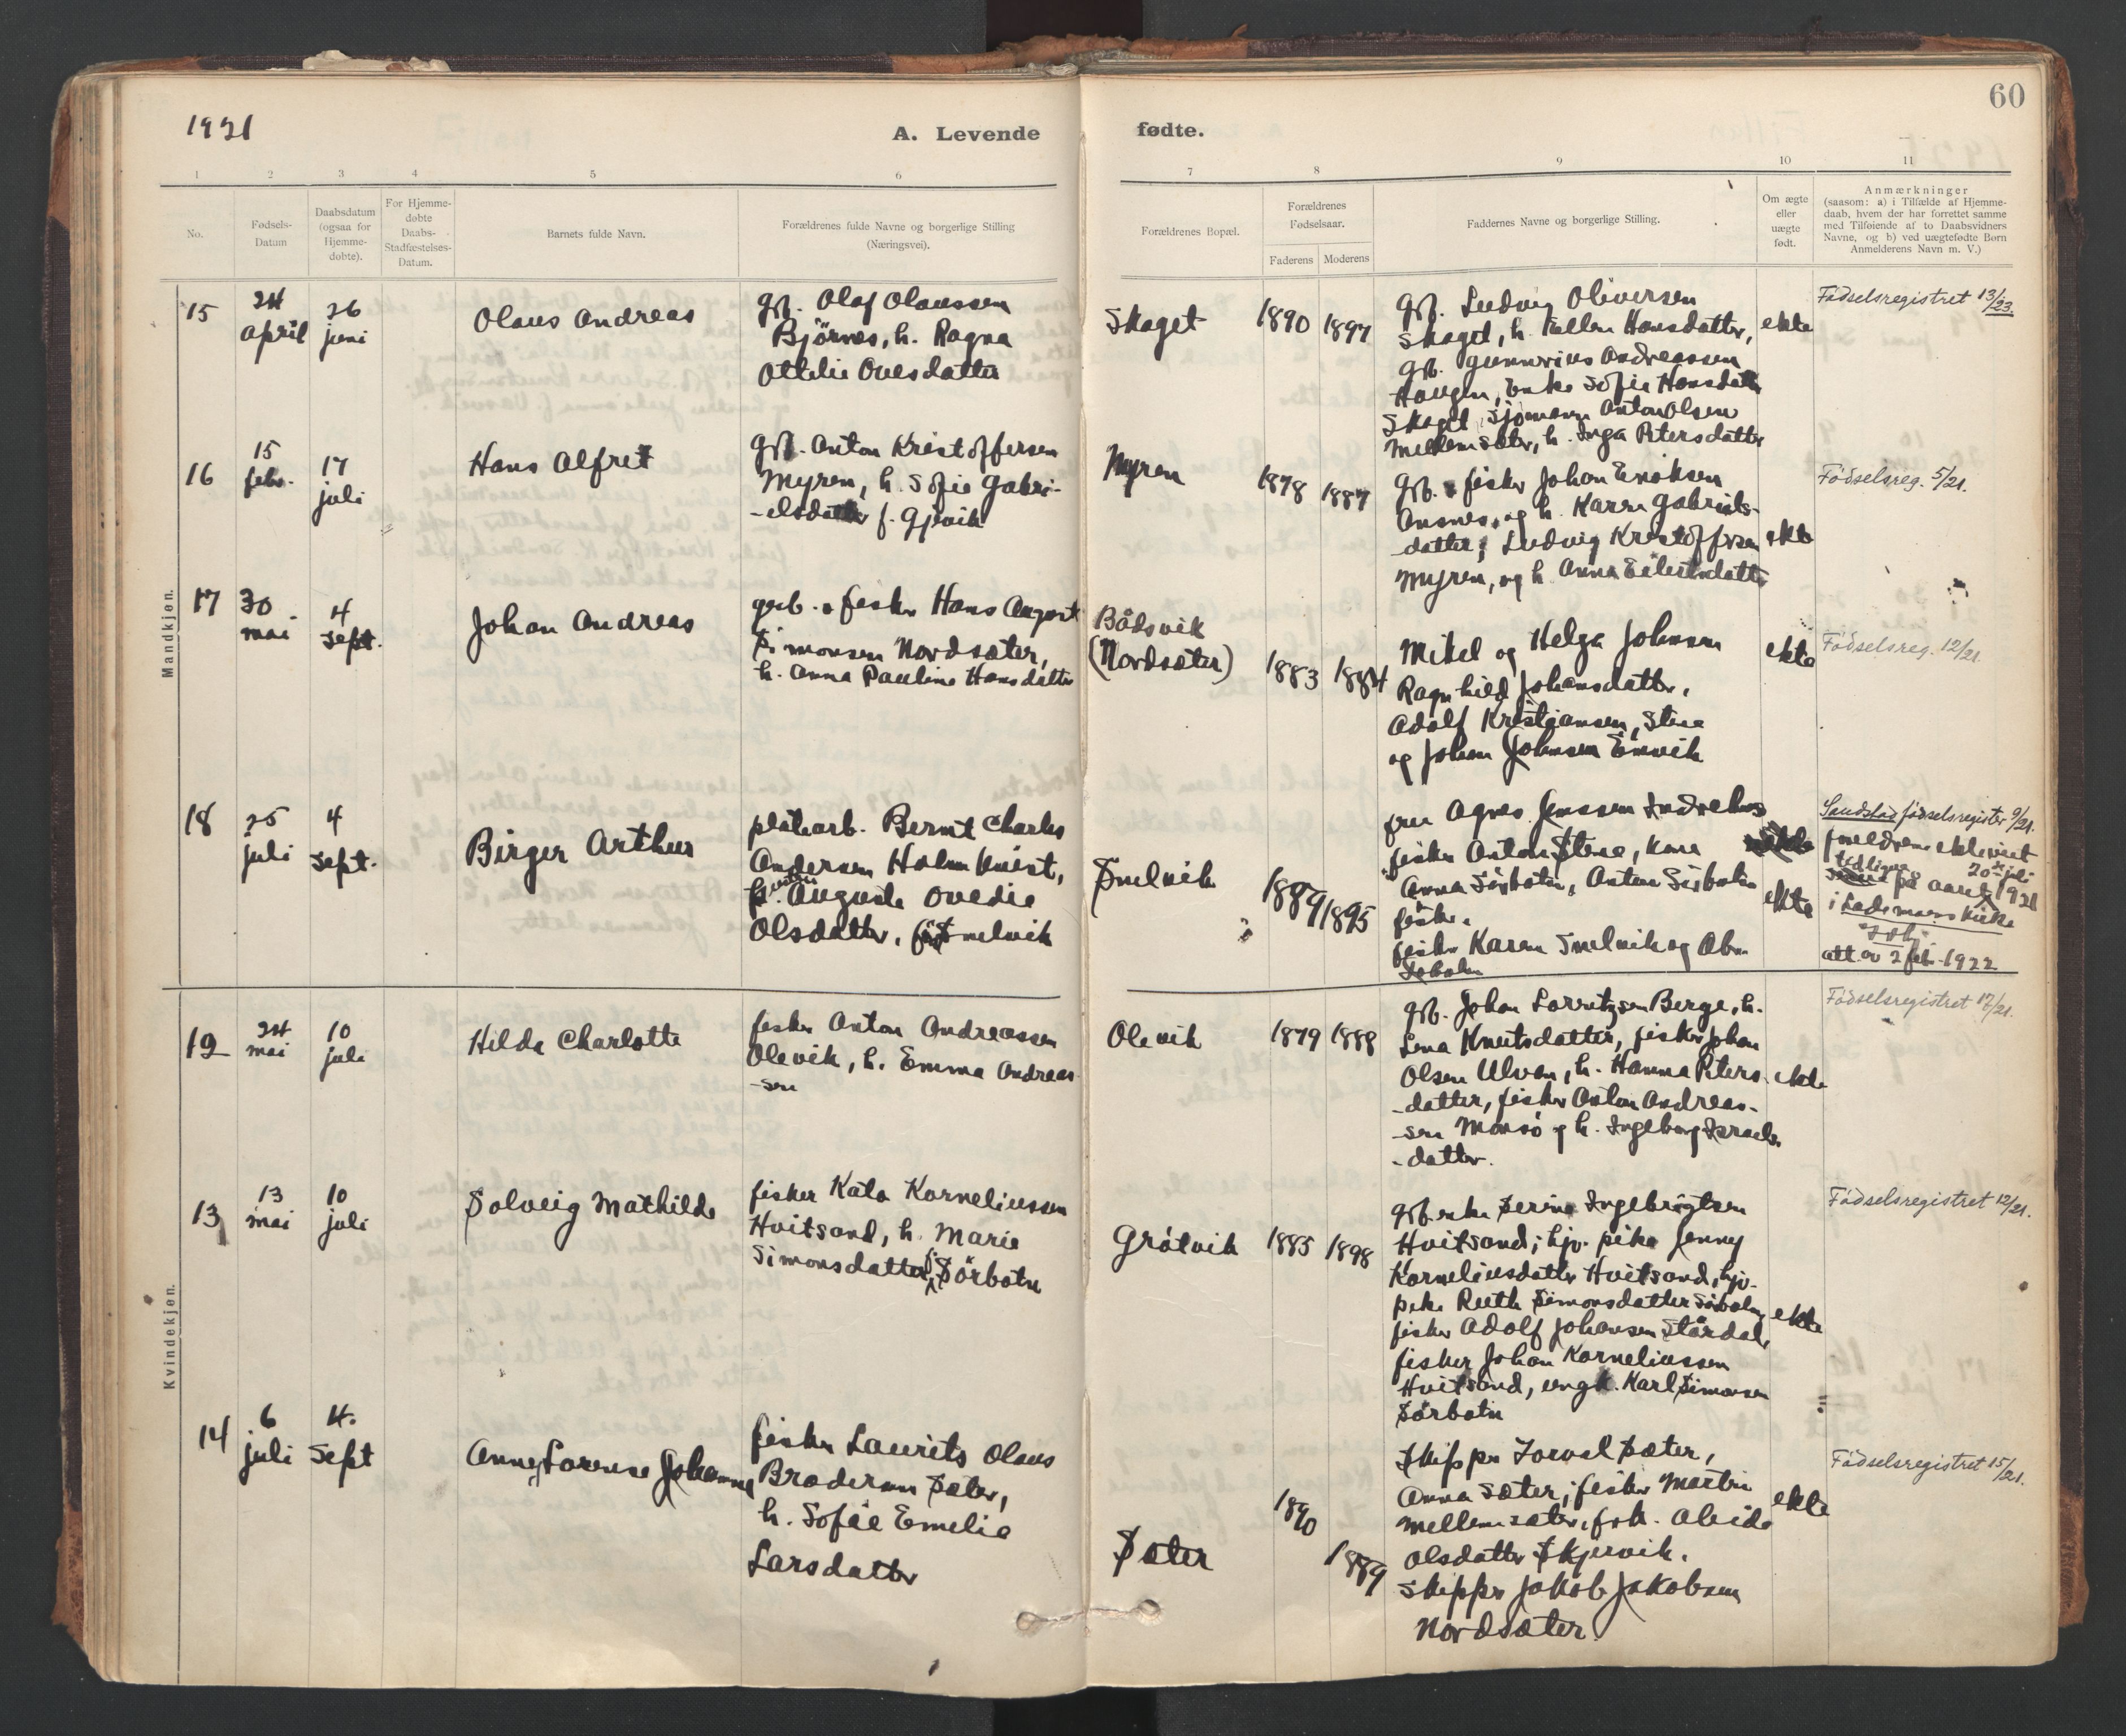 60
1921
A. Levende
fødte.
1 2 3 4 5 6
7 8 9 10 11
No.
Fødsels-
Datum
Daabsdatum
(ogsaa for
Hjemme-
døbte).
For Hjemme-
døbte
Daabs-
Stadfæstelses-
Datum.
Barnets fulde Navn.
Forældrenes fulde Navne og borgerlige Stilling
(Næringsvei).
Forældrenes Bopæl.
Forældrenes
Fødselsaar.
Faderens
Moderens
Faddernes Navne og borgerlige Stilling.
Om ægte
eller
uægte
født.
Anmærkninger
(saasom: a) i Tilfælde af Hjemme-
daab, hvem der har forrettet samme
med Tilføiende af to Daabsvidners
Navne, og b) ved uægtefødte Børn
Anmelderens Navn m. V.)
Mandkjøn.
15
24
april
26
juni
Olaus Andreas
gb. Olaf Olaussen
Björnes, h. Ragna
Ottilie Ovesdatter
Skaget
1890
1897
gb. Ludvig Oliversen
Skaget, h. Hansdatter,
gb. Andreassen
Haugen, enke Sofie Hansdatter
Skaget, Sjömann Anton Olsen
Mellemsæter, h. Inga Petersdatter
ekte
Fødselsregistret 13/23.
16
15
febr.
17
juli
Hans Alfret
gb. Anton Kristoffersen
Myren, h. Sofie Gabri-
-elsdatter f. Gjevik
Myren
1878
1887
gb. fisker Johan Enoksen
Ansnes, og h. Karen Gabriels-
datter, Ludvig Kristoffersen
Myren, og h. Anna Eilertsdatter
ekte
Fødselsreg. 5/21.
17
30
mai
4
Sept.
Johan Andreas
gb. fisker Hans August
Simonsen Nordsæter,
h. Anna Pauline Hansdatter
Bådsvik
(Nordsæter)
1883
1884
Mikel og Helga Johnsen
Ragnhild Johansdatter,
Adolf Kristiansen, Stene
og Johan Johnsen
ekte
Fødselsreg. 12/21.
18
25
juli
4
Sept.
Birger Arthur
platearb. Bernt Charles
Andersen Holmkvist,
Auguste Ovedie
Olsdatter, Smelvik
Smelvik
1889
1895
fru Agnes Jenssen
fisker Anton Stene,
Anna Sörbotn, Anton Sörbotn
fisker
fisker Karen Smelvik og
ekte
Sandstad fødselsregister 9/21.
foreldrene ekteviet
20 juli
1921
i Lademoens kirke
att. av 2 feb. 1922
Kvindekjøn.
12
24
mai
10
juli
Hilda Charlotte
fisker Anton Andreassen
Olevik, h. Emma Andreas-
-sen
Olevik
1879
1888
gb. Johan Lorritzsen Berge, h.
Lena Knutsdatter, fisker Johan
Olsen Ulvan, h. Hanna Peters-
-datter, fisker Anton Andreas-
-sen og h. Ingeborg
-datter.
ekte
Fødselsregistret 17/21.
13
13
mai
10
juli
Solveig Mathilde
fisker Kato Korneliussen
Hvitsand, h. Marie
Simonsdatter, f. Sörbotn
Grötvik
1885
1898
gb. enke Serine Ingebrigtsen
Hvitsand; hjv. pike Jenny
Korneliusdatter Hvitsand, hjv.
pike Ruth Simonsdatter Sörbotn
fisker Adolf Johansen
fisker Johan Korneliussen
Hvitsand, ungk. Karl Simonsen
Sörbotn
ekte
Fødselsregistret 12/21.
14
6
juli
4.
Sept
Anne Lorense Johanne
fisker Laurits Olaus
Brodersen Sæter,
h. Sofie Emelie
Larsdatter
Sæter
1890
1889
Skipper Torval Sæter,
Anna Sæter; fisker Martin
Mellemsæter, frk. Alvide
Olsdatter Skjervik.
Skipper Jakob Jakobsen
Nordsæter.
ekte
Fødselsregistret 15/21.